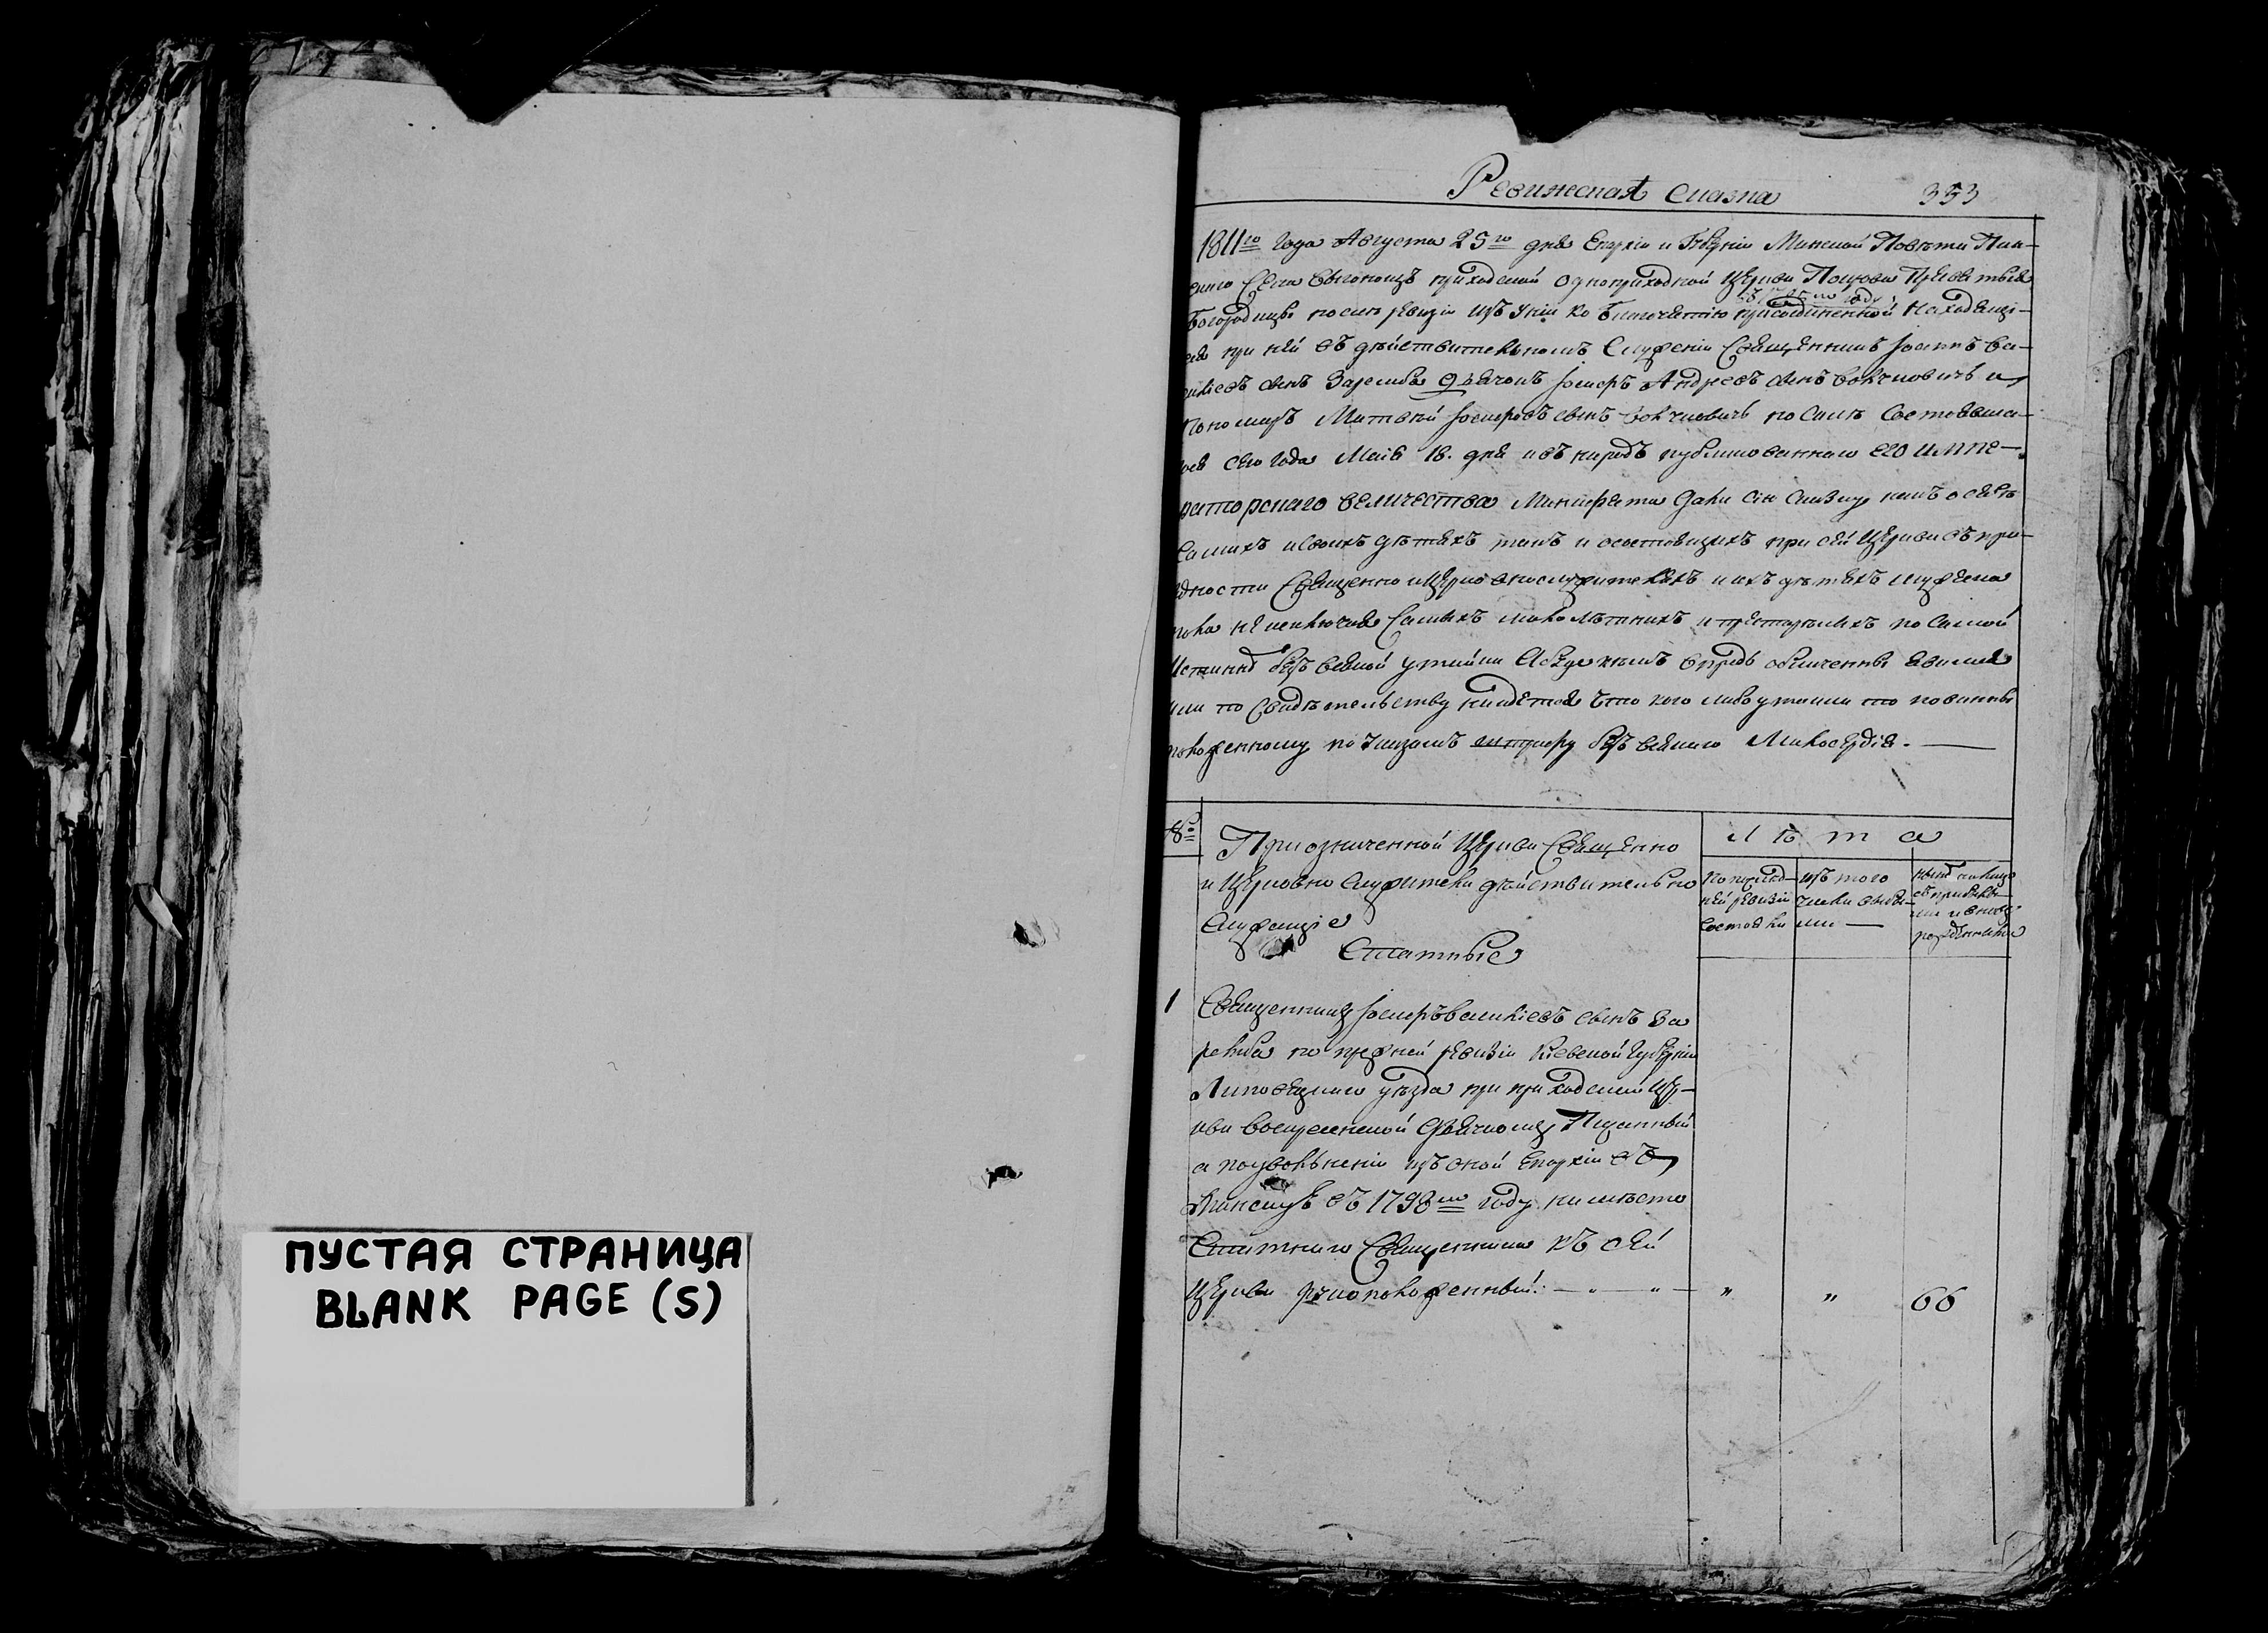 ПУСТАЯ СТРАНИЦА
BLANK PAGE (S)
Ревижская сказка 353
1811го года Августа 25го дня Епархіи и Губерніи Минской Повета Пин-
скаго Села приходской одноприходной Церкви Покрова Пресвятыя
Богородицы посли ревизіи изъ Уніи ко благочестію присоединенной находящі-
еся при ней въ действительномъ служеніи Священникъ Ва-
силіевъ сынъ Заремба дьячокъ Андреевъ сынъ и
Пономарь Матвей сынъ по силе состоявша-
гося сего года Маія 18. дня и въ народъ публикованнаго его импе-
раторскаго величества Манифеста дали сію сказку какъ о себе
самихъ и своихъ детяхъ такъ и о состоящихъ при сей Церкви въ пра-
здности Священно и Церковнослужителяхъ и ихъ детяхъ мужеска
пола не исключая самыхъ малолетнихъ и престарелыхъ по самой
Истинне безъ всякой утайки а будежъ кемъ впредь обличенны явимся
или по свидетельству найдется что кого либо утаили то повинны
положенному по указамъ штрафу безъ всякаго Милосердія.
№
При означенной Церкви Священно
и Церковно Служители действительно
служащіе
Штатные
Л е т а
по послед-
ней ревизіи
состояли
изъ того
числа выбы-
ли
ныне на лицо
съ прибылы-
ми и вновь
рожденными
1 Священникъ Василіевъ сынъ За
ремба по прежней ревизіи Кіевской Губерніи
Липовецкаго уезда при приходской Цер-
кви Воскресенской Дьячкомъ Писанный
а по уволненіи изъ оной Епархіи въ
Минскую въ 1798мъ году на место
Штатнаго Священника къ сей
Церкви рукоположенный. — " — " — " " 66